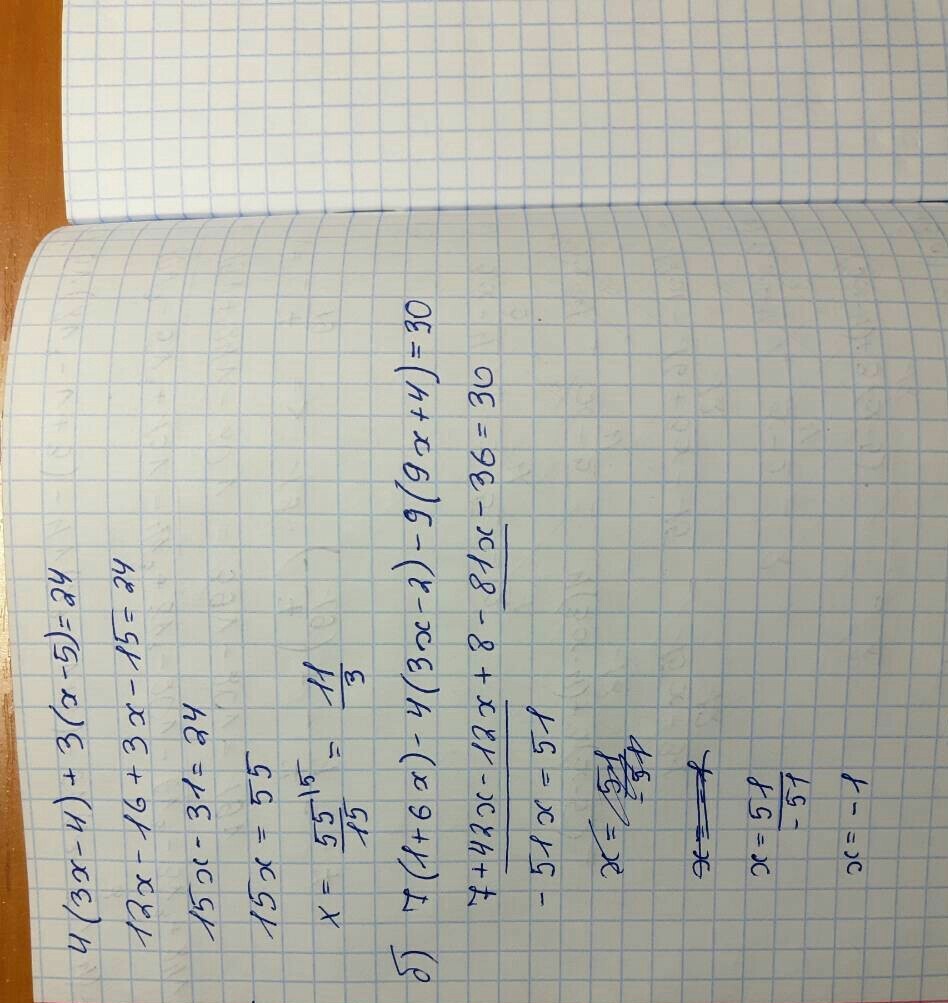 4(3x-4)+3(x-5)=24
12x-16+3x-15=24
15x-31=24
15x=55
x=55/15 |5 = 11/3
б) 7(1+6x)-4(3x-2)-9(9x+4)=30
7+42x-12x+8-81x-36=30
-51x=51
x=51/-51
x=-1
x=51/-51
x=-1